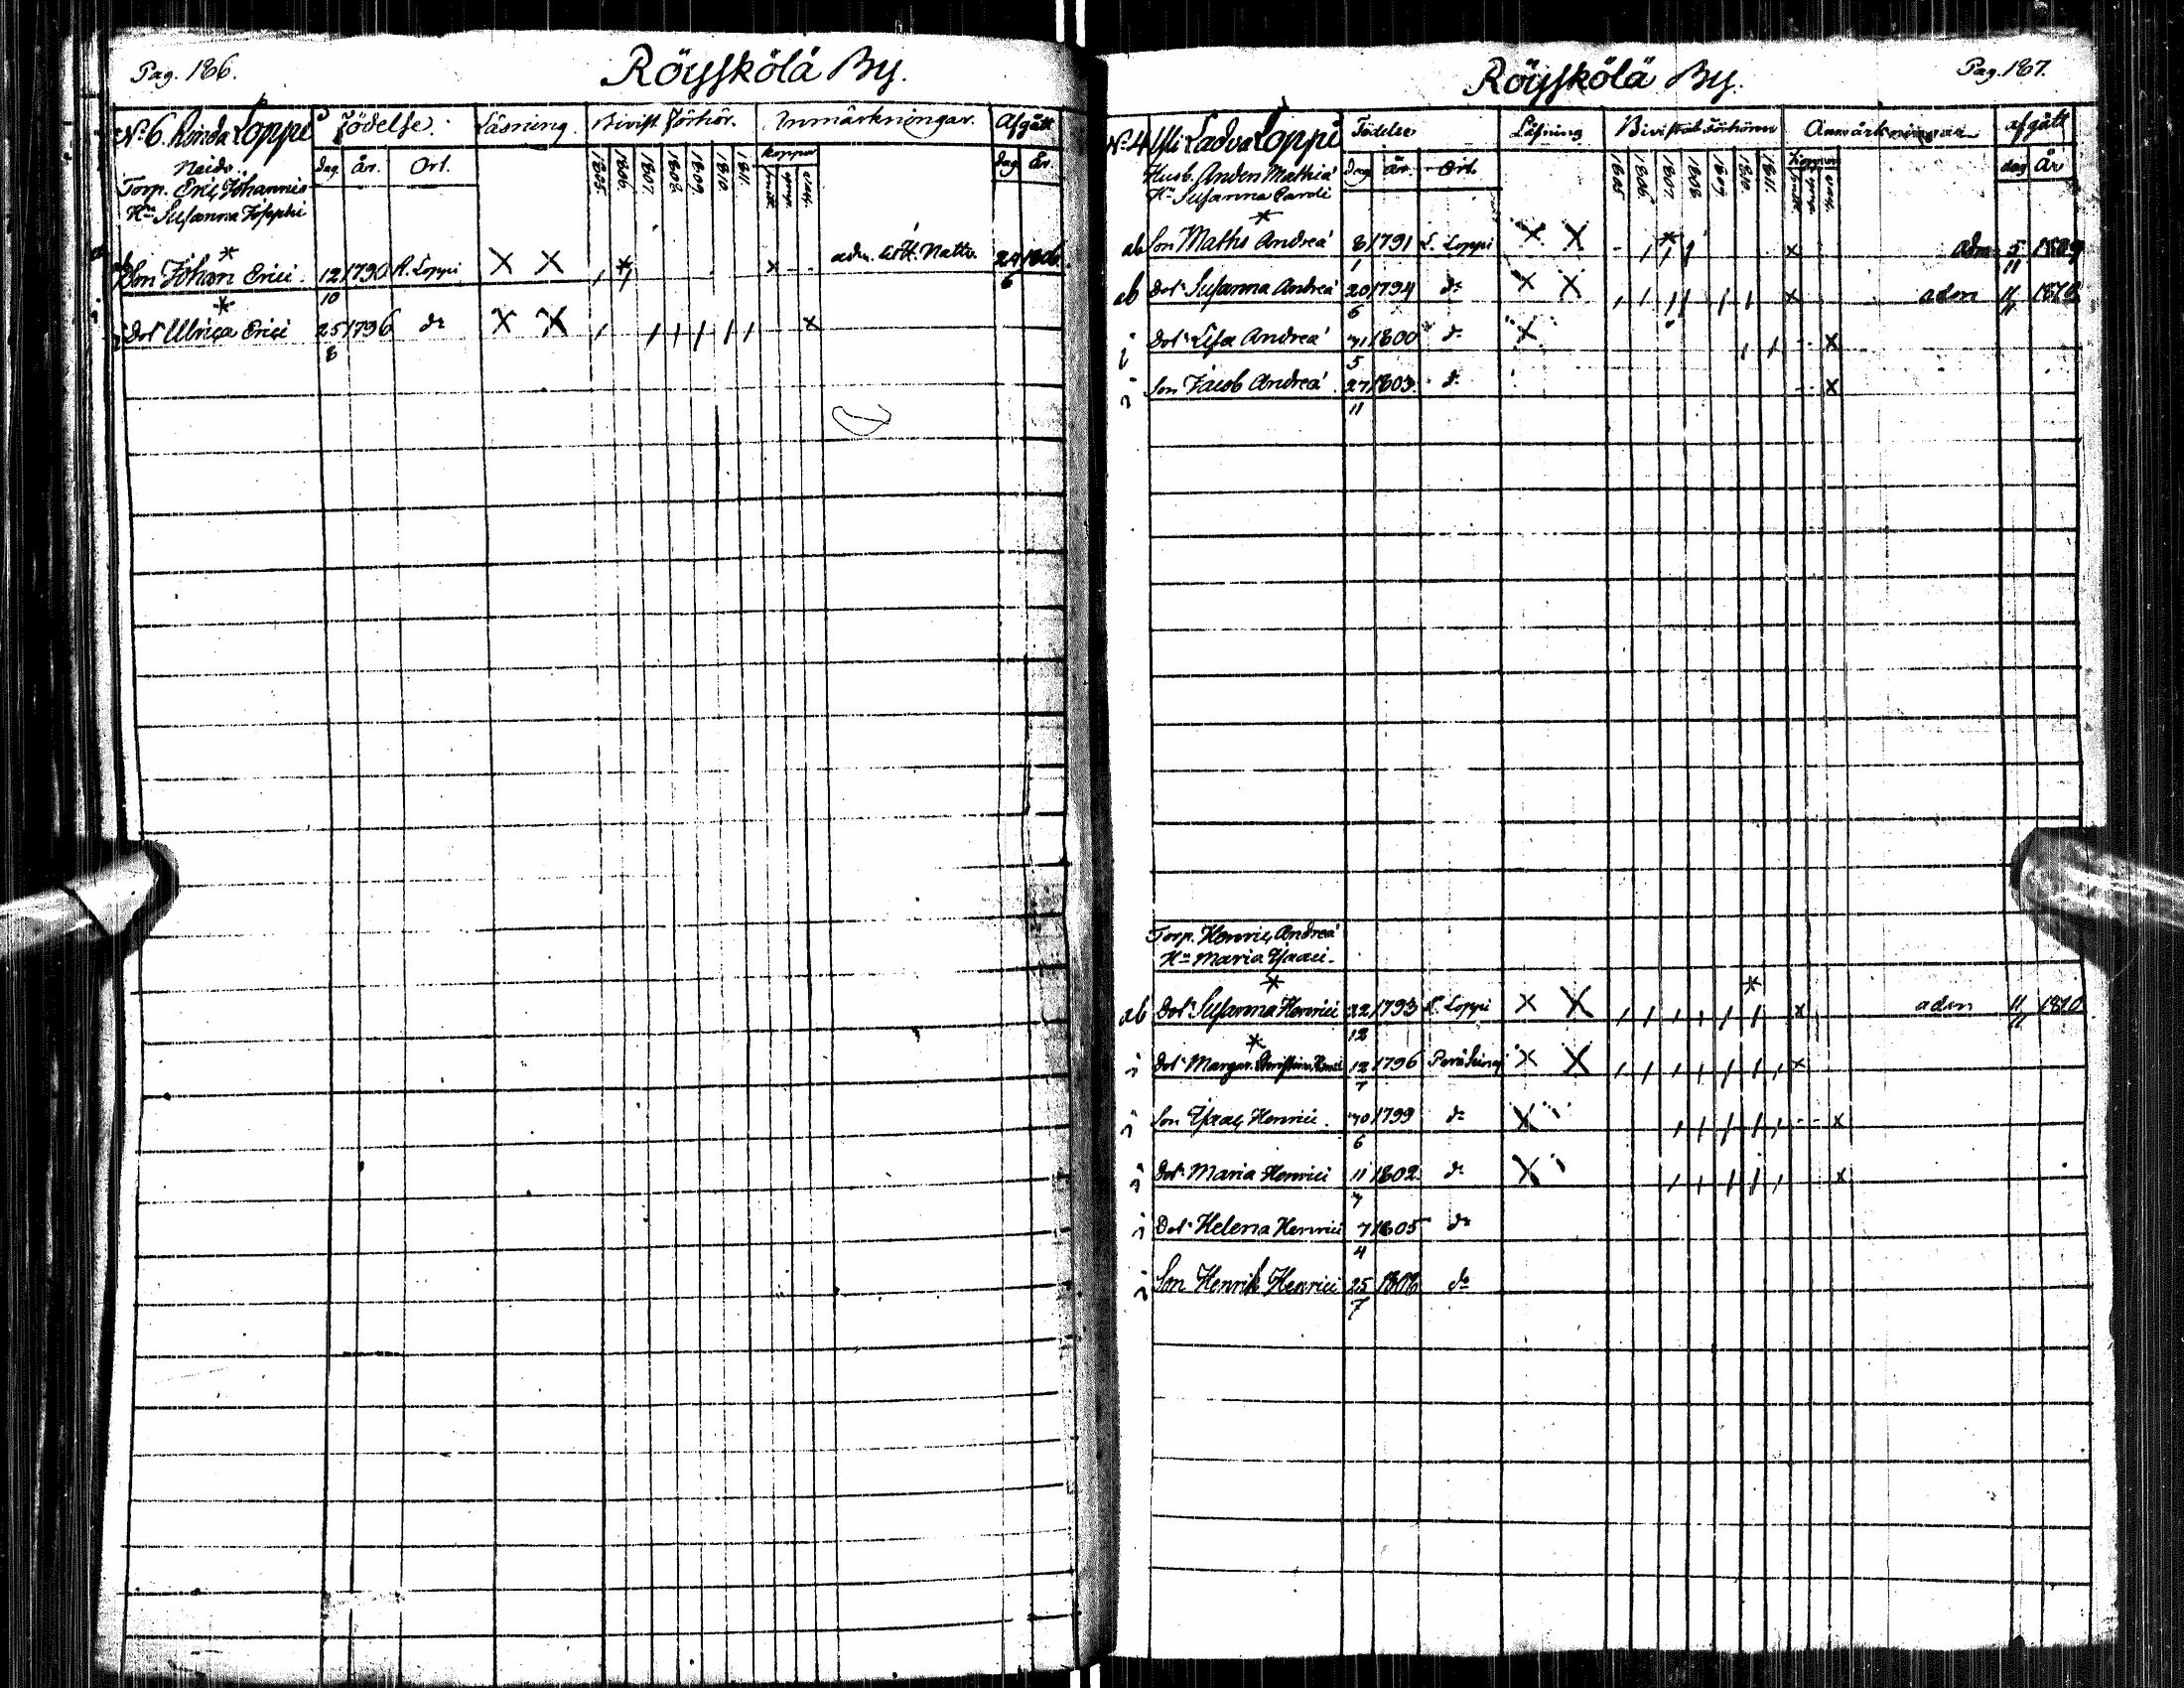 Pag. 186.
Röyskölä By.
N:6. Loppi
Födelse. Läsning. Bivist. Förhör. Anmärkningar. Afgått
dag. år. Ort. 1805. 1806. 1807. 1808. 1809. 1810. 1811. koppor dag. år.
Torp. Eric Johannis
Hu Susanna Josephi
Son Johan Erici. 12/10 1790 K. Loppi X X adm. Natt. 24/6 1806
i Dotr Ulrica Erici 25/8 1796 do X X x
Röyskölä By.
Pag. 187.
N:4 Yli Ladva Loppi
Födelse Läsning Bivistat förhören Anmärkningar afgått
dag år Ort. 1805 1806 1807. 1808 1809 1810. 1811. Koppor dag År
Husb. Anders Mathiæ
Hu Susanna Caroli
ab Son Maths Andreæ 8/1 1791 K. Loppi X X x adm 5/11 1809
ab Dotr Susanna Andreæ 20/6 1794 do X X x adm 11/11 1810
i Dotr Lisa Andreæ 31/5 1800 do X x
i Son Jacob Andreæ 27/11 1803. do x
Torp. Henric Andreæ
Hu Maria Isaaci
ab Dotr Susanna Henrici 22/12 1793 K. Loppi X X x adm 11/11 1810
i Dotr Margar. Christina Henrici 12/7 1796 X X x
i Son Isaac Henrici. 30/6 1799 do X x
i Dotr Maria Henrici 11/7 1802. do X x
i Dotr Helena Henrici 7/4 1805 do
i Son Henrik Henrici 25/7 1808 do